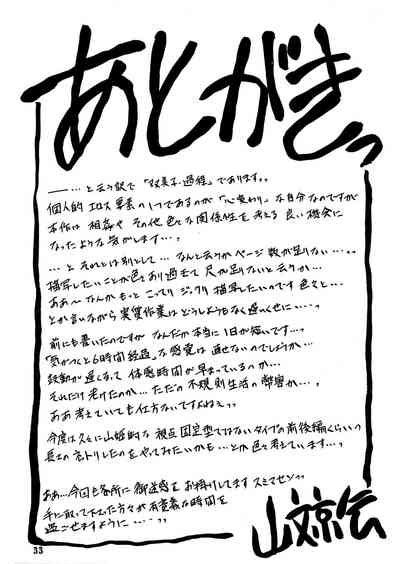 あとがきっ
―― …と云う訳で「双美子過程」であります。。
個人的エロス要素の1つであるが「心変わり」な自分なのですが
本作は 相姦や その他 色々な関係性を考える 良い機会に
なったような気がします…。
…と それとは別として… なんと云うか ページ数が足りない…‥
描写したいことが色々あり過ぎて 尺が足りないと云うか…
ああ〜 なんか もっと こってり ジックリ 描写したいのです 色々と…
とか言いながら 実質作業は どうしようもなく遅いくせに…‥。
前にも書いたのですが なんだか本当に 1日が短いです…。
「気がつくと6時間経過」な感覚は 直せないのでしょうか…
鼓動が遅くなって 体感時間が 早まっているのか…
それだけ老けたのか… ただの不規則生活の弊害か…。
ああ考えていても仕方ないですよねぇ。。
今度は久々に 山姫的な 視点固定型ではないタイプの 前後編くらいの
長さの ネトリものを やってみたいかも…とか 色々考えています…。
ああ…今回も各所に 御迷惑を お掛けしてます スミマセン。。
手に取って下さった方々が 有意義な時間を
過ごせますように…‥。。
山文京伝
33